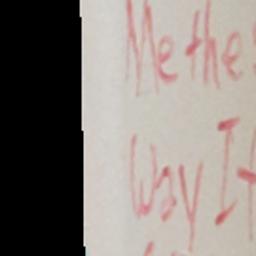 Me the
Way I